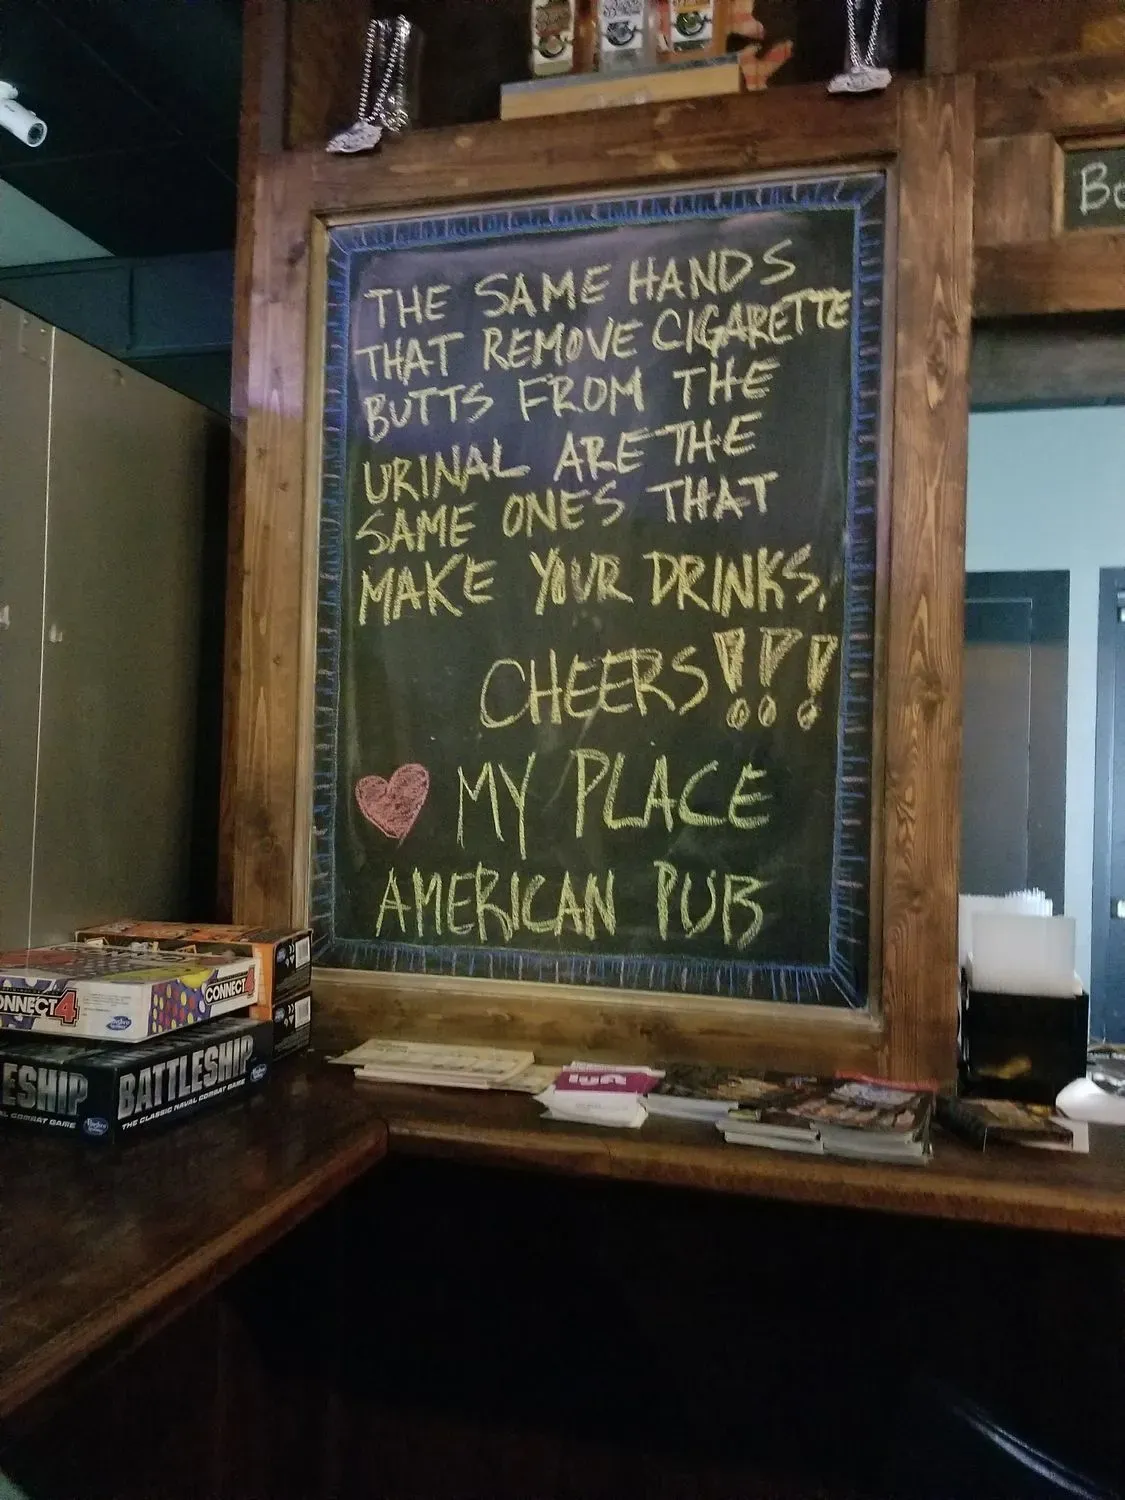 THE SAME HANDS
THAT REMOVE CIGARETTE
BUTTS FROM THE
URINAL ARE THE
SAME ONES THAT
MAKE YOUR DRINKS,
CHEERS!!!
MY PLACE
AMERICAN PUB
ONNECT 4
CONNECT 4
ESHIP
BATTLESHIP
THE CLASSIC NAVAL COMBAT GAME
lyft